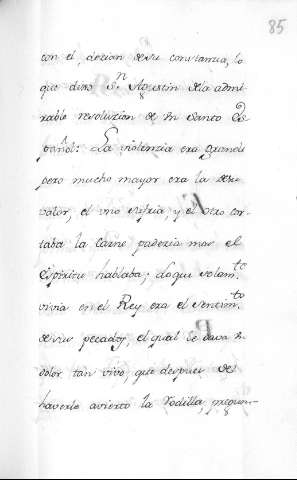 85
con el, decian de su constancia, lo
que dixo Sn. Agustin dela admi-
rable resoluzion de Vn Santo Es
pañol: La violencia era grande
pero mucho mayor era la de su
valor, el vno sufria, y el otro cor-
taba la carne padezia mas el
espiritu hablaba; lo que solamte.
vivia en el Rey era el sentimto.
de sus pecados, el qual le dava Vn
dolor tan vivo, que despues de
haverle avierto la Rodilla, pregun-